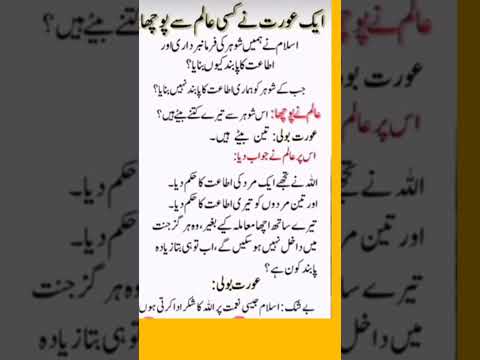 ایک عورت نے کسی عالم سے پوچھا
اسلام نے ہمیں شوہر کی فرمانبرداری اور
اطاعت کا پابند کیوں بنایا؟
جب کے شوہر کو ہماری اطاعت کا پابند نہیں بنایا؟
عالم نے پوچھا: اس شوہر سے تیرے کتنے بیٹے ہیں؟
عورت بولی: تین بیٹے ہیں۔
اس پر عالم نے جواب دیا:
اللہ نے تجھے ایک مرد کی اطاعت کا حکم دیا۔
اور تین مردوں کو تیری اطاعت کا حکم دیا۔
تیرے ساتھ اچھا معاملہ کیے بغیر، وہ ہر گز جنت
میں داخل نہیں ہو سکیں گے، اب تو ہی بتا زیادہ
پابند کون ہے؟
عورت بولی:
بے شک: اسلام جیسی نعمت پر اللہ کا شکر ادا کرتی ہوں
عالم نے پوچھا:
اس پر عالم
اللہ نے
حکم دیا۔
اور تین
میں داخل
تو ہی بتا زیادہ